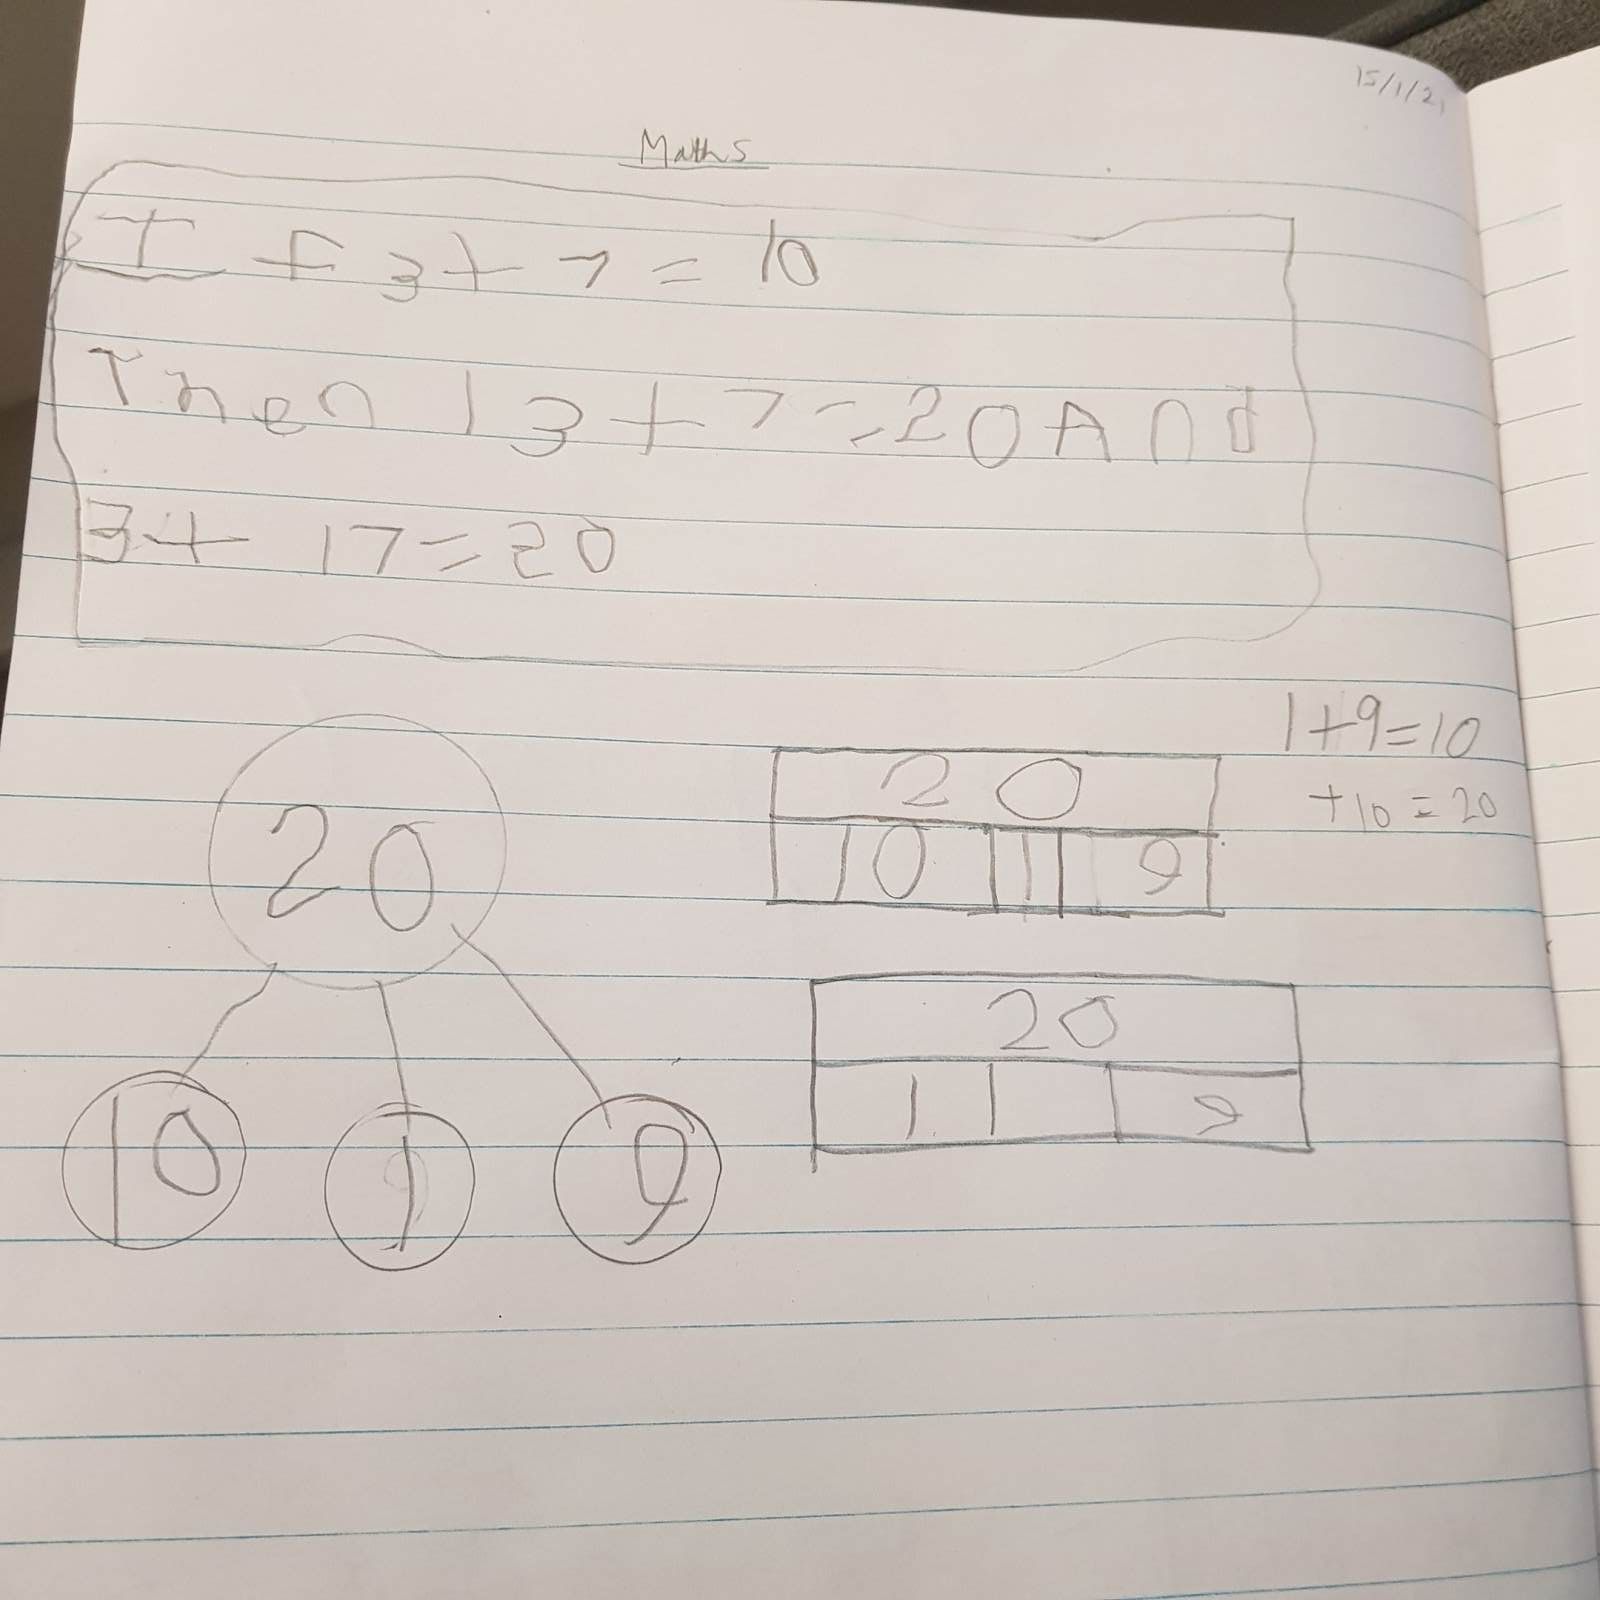 15/1/21
Maths
If 3+7=10
Then 13+7=20 And
3+17=20
1+9=10
+10=20
20
10 1 9
20
10 1 9
20
11 9